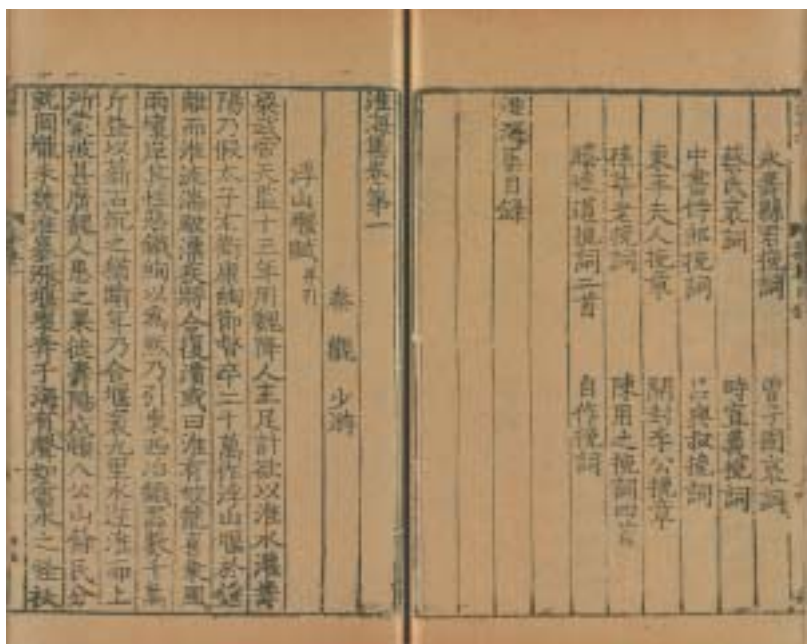 永壽縣君挽詞　曾子固哀詞
蔡氏哀詞　時宜義挽詞
中書侍郎挽詞　呂與叔挽詞
東平夫人挽章　開封李公挽章
孫莘老挽詞　陳用之挽詞四首
滕達道挽詞二首　自作挽詞
淮海集目錄
淮海集卷第一
秦觀少游
浮山堰賦并引
梁武帝天監十三年用魏降人王足計欲以淮水灌壽
陽乃假太子右衛康絢節督卒二十萬作浮山堰於鍾
離而淮波湍駛漂疾將合復潰或曰淮有蛟龍喜乘風
雨壞岸其性惡鐵絢以爲然乃引東西冶鐵器數千萬
斤益以薪石沉之猶踰年乃合堰袤九里水逆淮而上
所蒙被甚廣魏人患之果徙壽陽戍頓八公山餘民分
就岡壟未幾淮暴漲堰壞奔于海有聲如雷水之怪妖